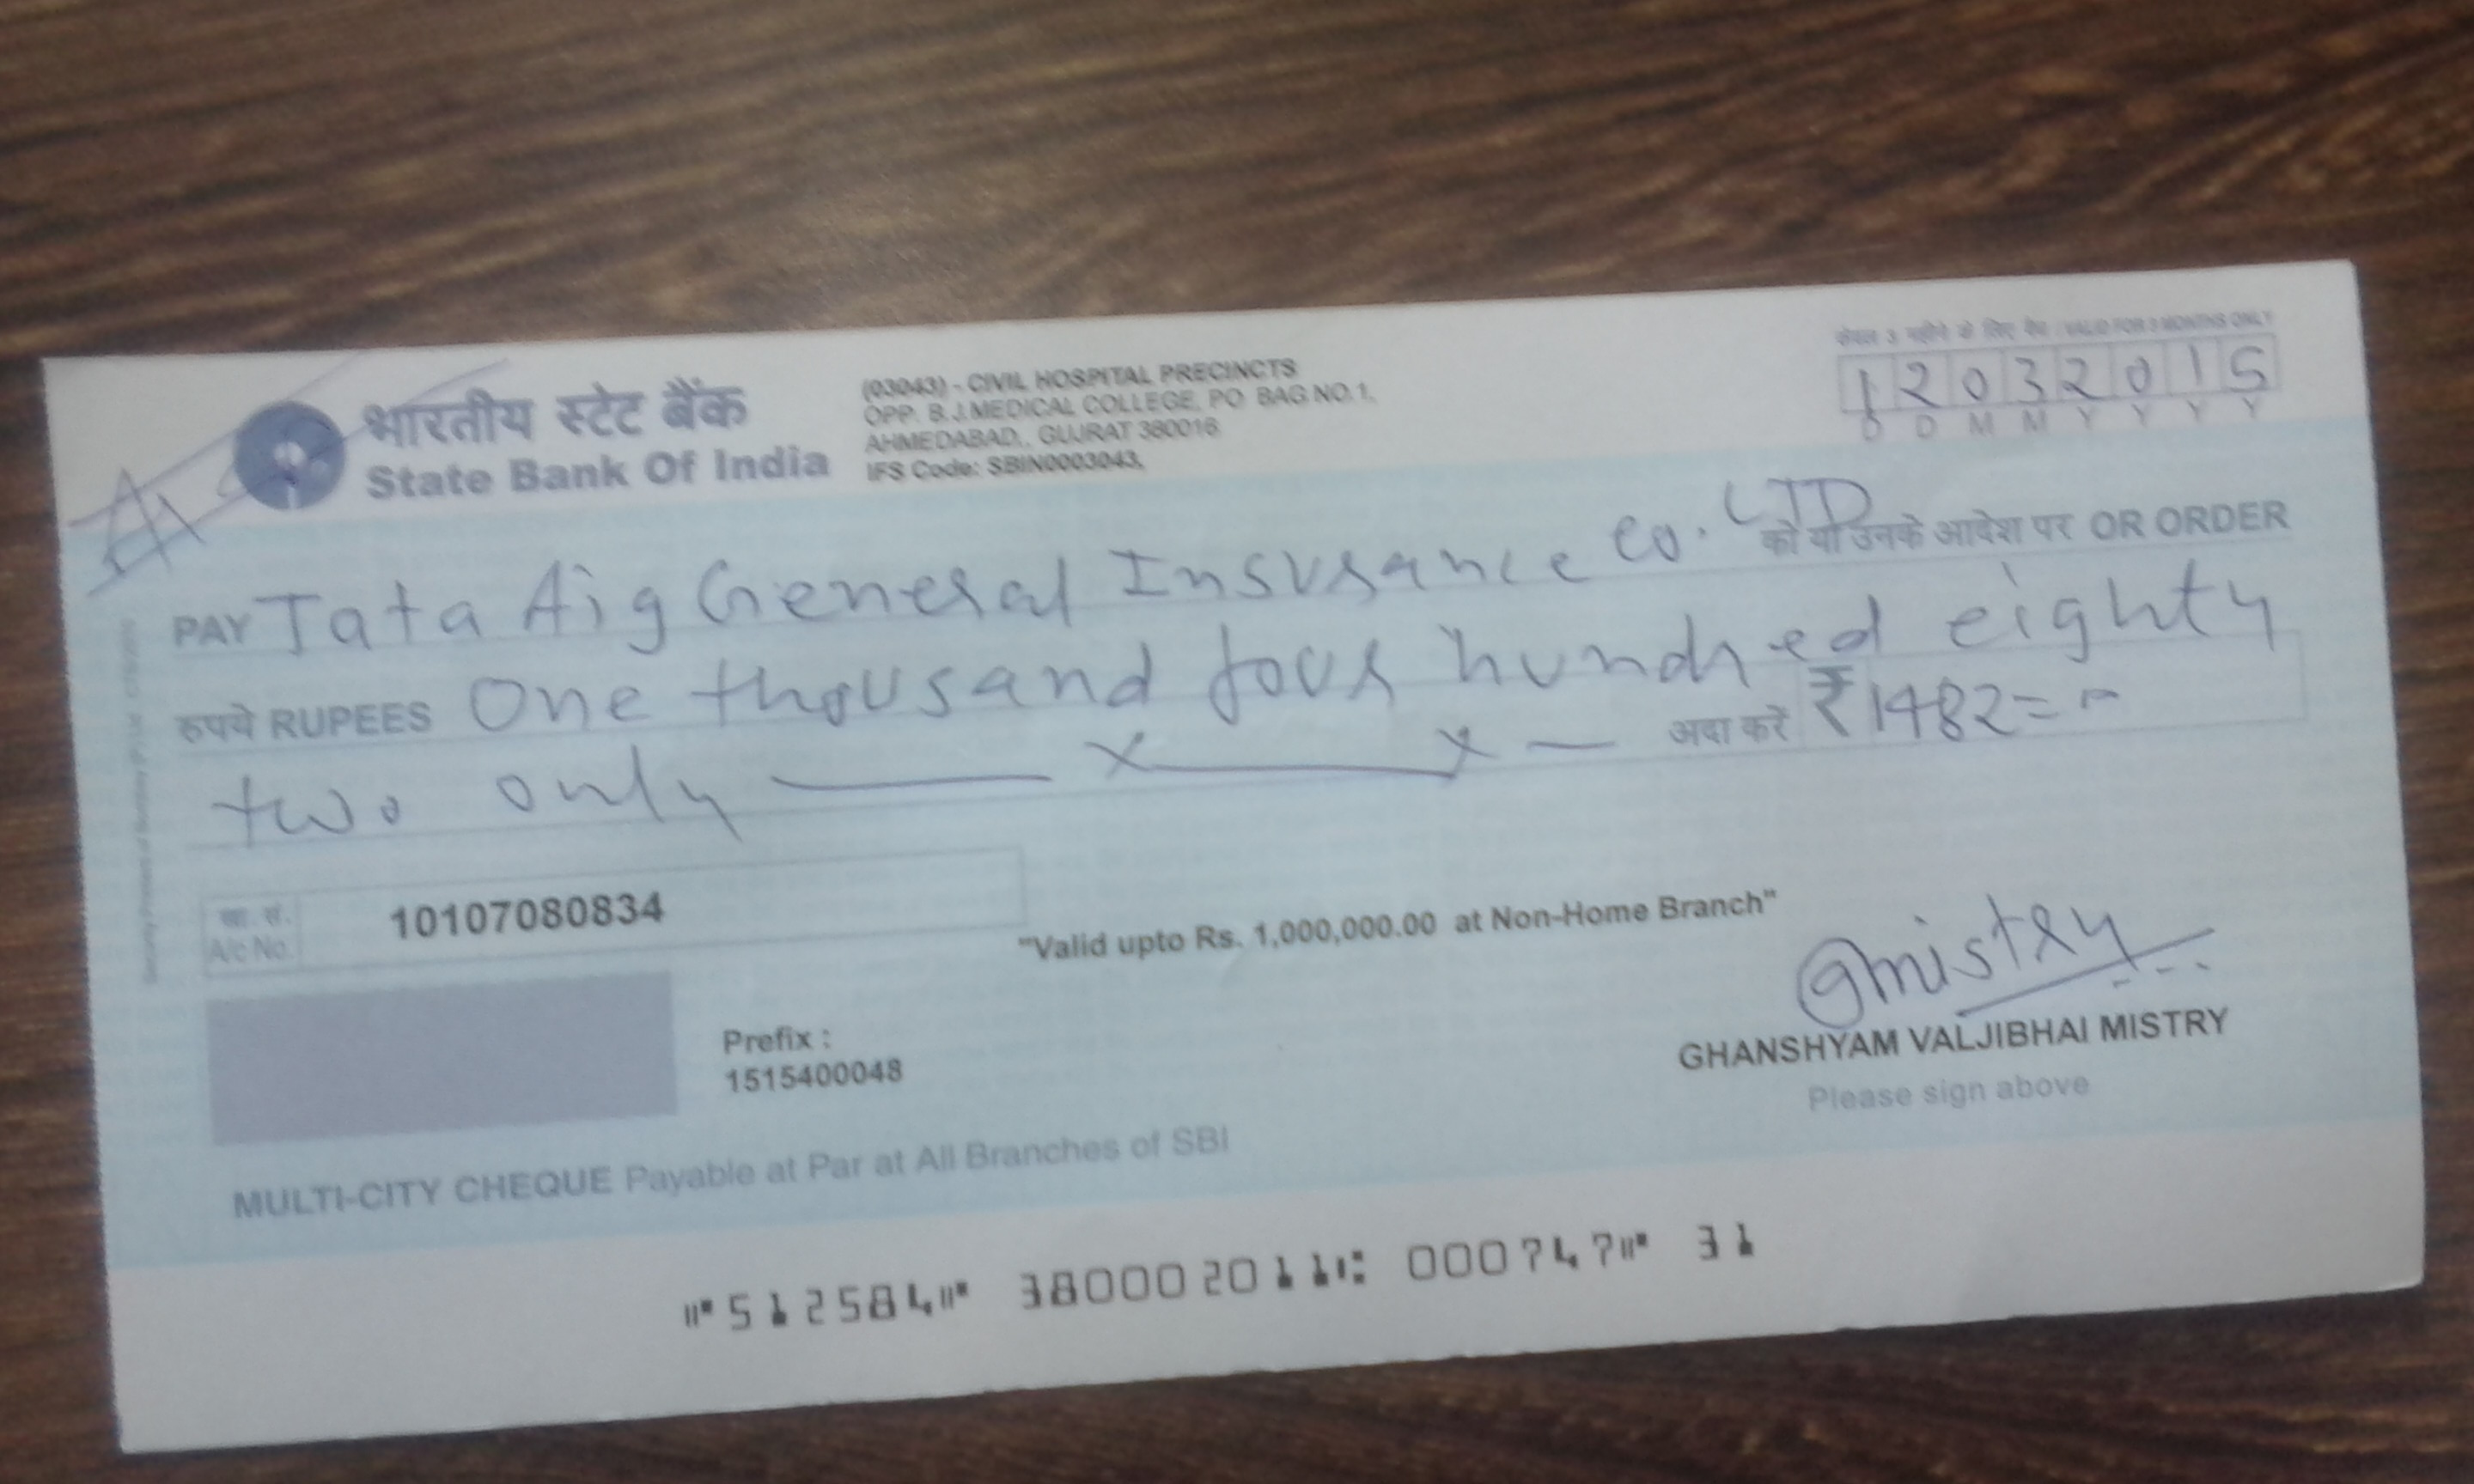 भारतीय स्टेट बैंक
State Bank Of India
(03043) - CIVIL HOSPITAL PRECINCTS
OPP. B.J.MEDICAL COLLEGE, PO BAG NO.1,
AHMEDABAD., GUJRAT 380016
IFS Code: SBIN0003043,
केवल 3 महीने के लिए वैध / VALID FOR 3 MONTHS ONLY
12032015
D D M M Y Y Y Y
PAY Tata Aig General Insurance Co. LTD को या उनके आदेश पर OR ORDER
रुपये RUPEES One thousand four hundred eighty
two only अदा करें ₹ 1482=
खा. सं.
A/c No. 10107080834
"Valid upto Rs. 1,000,000.00 at Non-Home Branch"
Gmistry
Prefix :
1515400048
GHANSHYAM VALJIBHAI MISTRY
Please sign above
MULTI-CITY CHEQUE Payable at Par at All Branches of SBI
⑈512584⑈ 380002011⑆ 000747⑈ 31